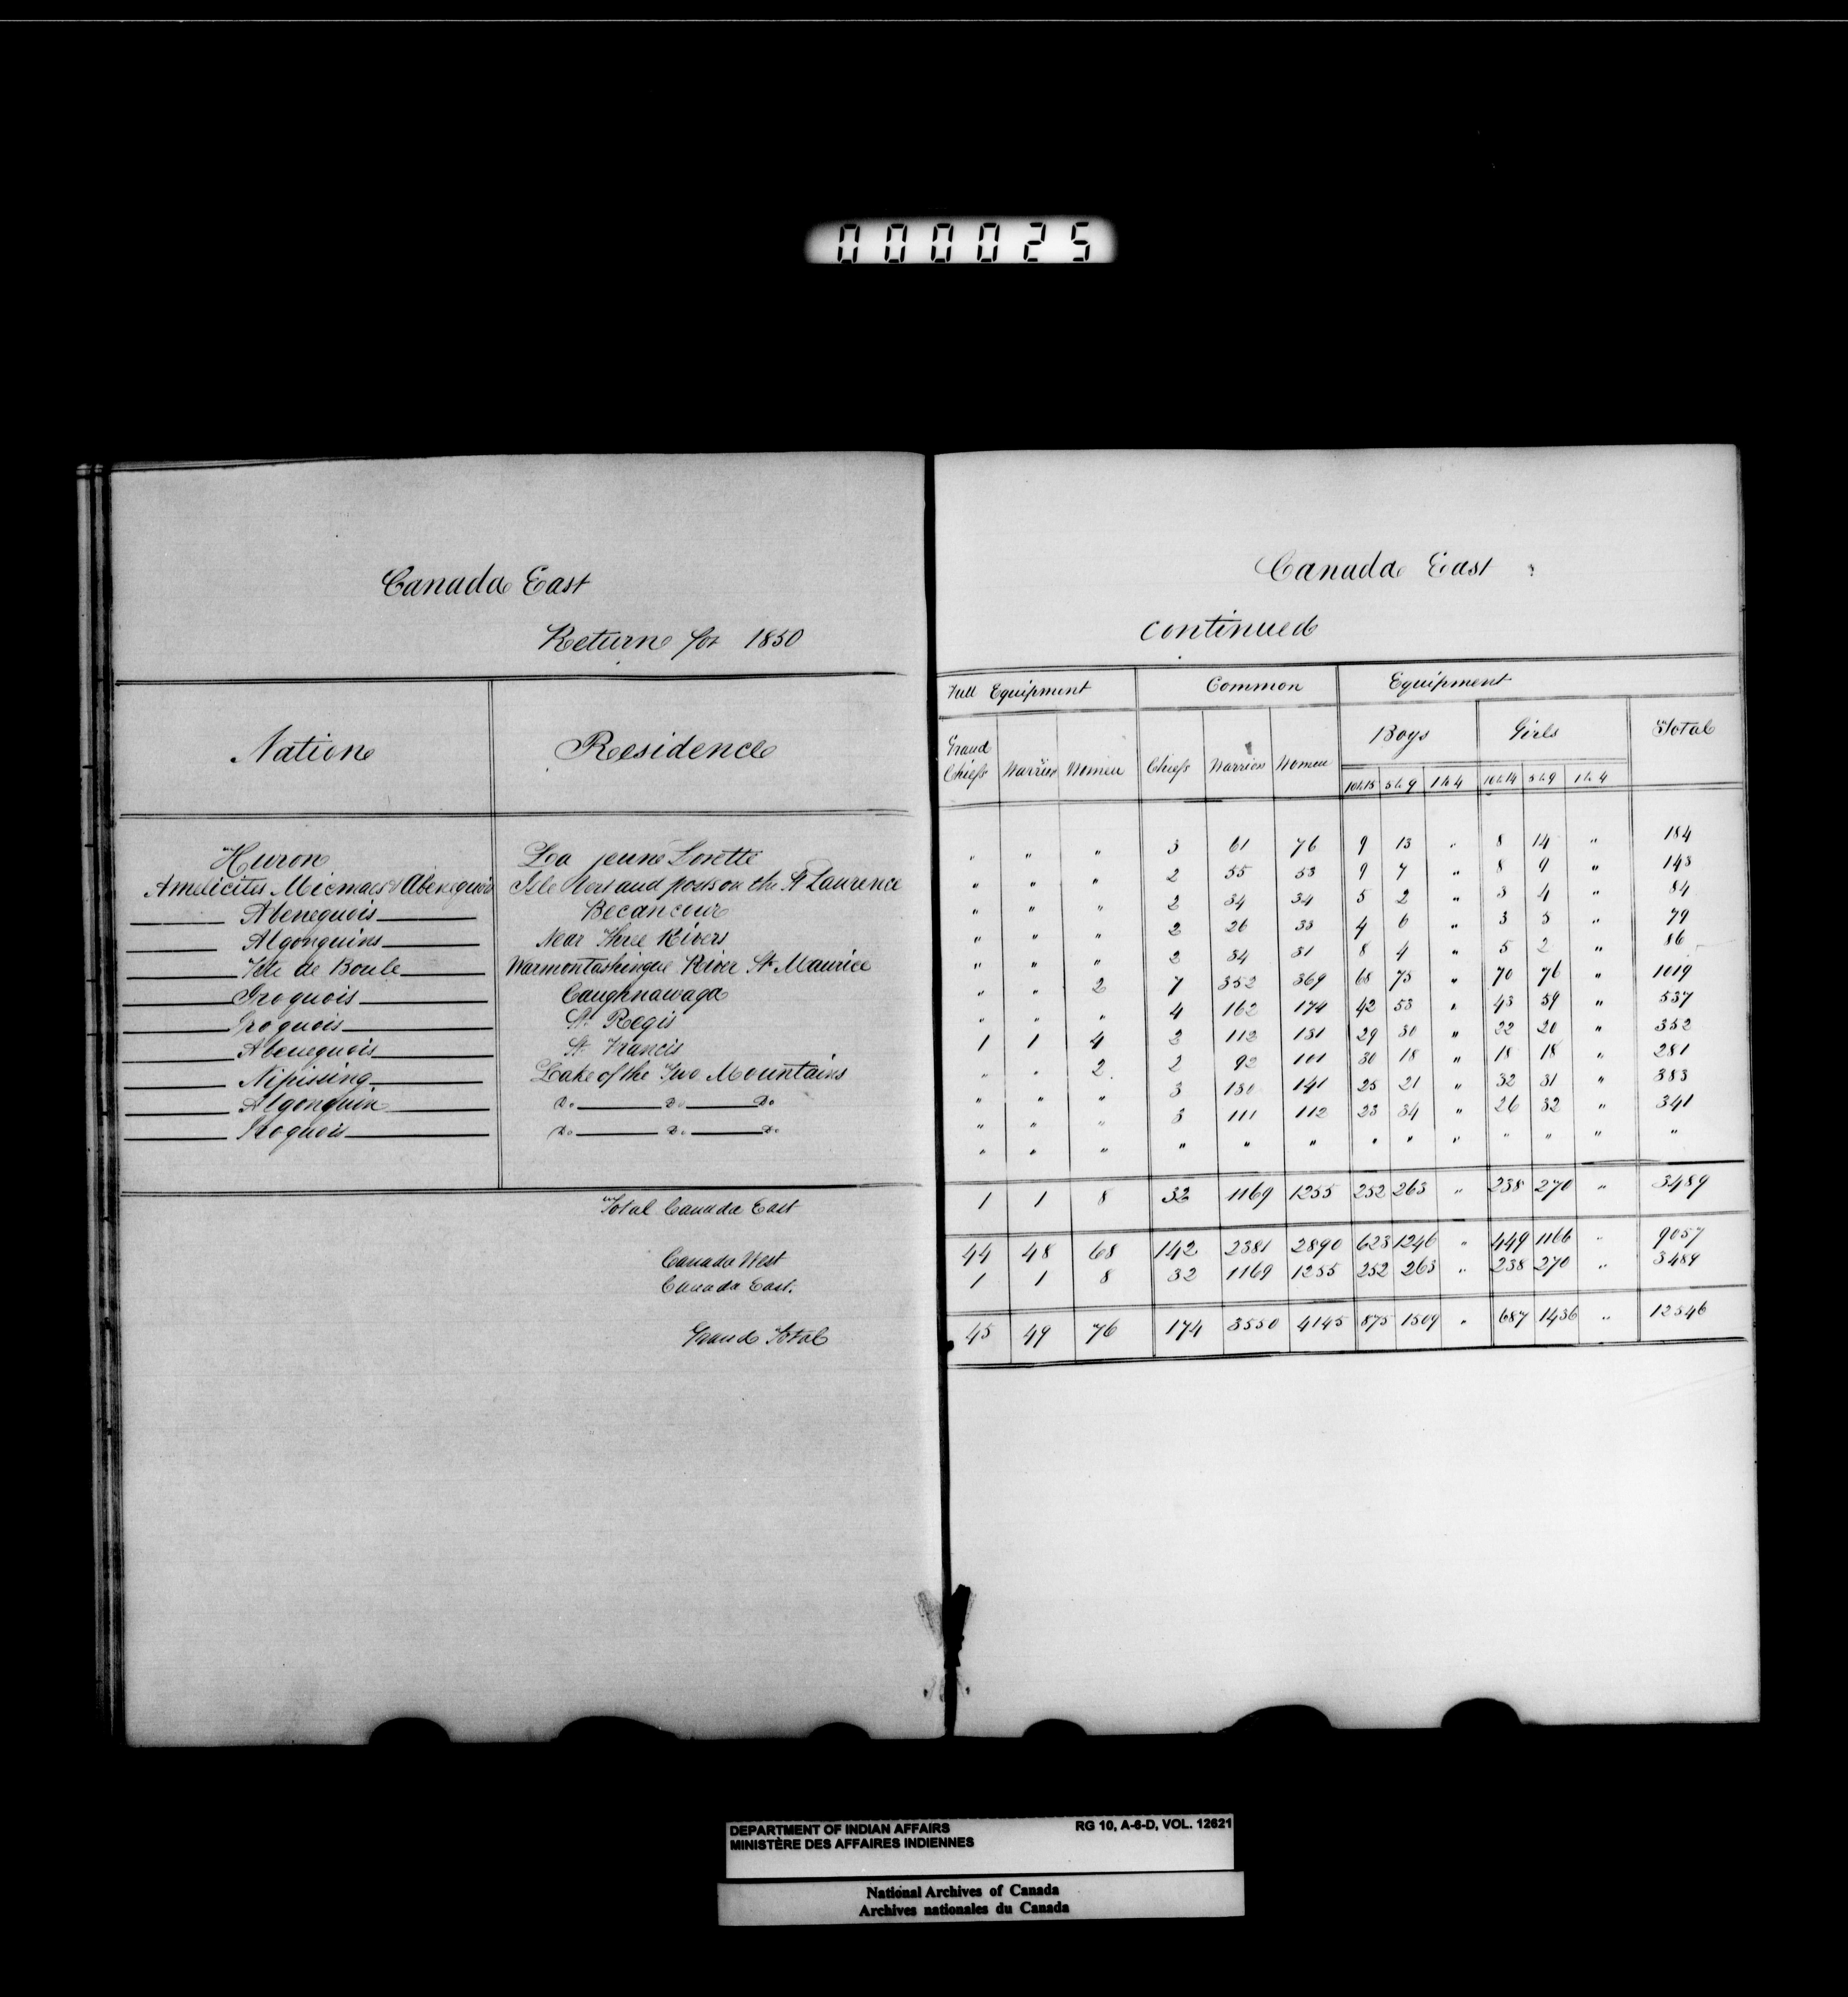 000025
Canada East
Return for 1850
Nation Residence
Huron La jeune Lorette
Amelicites Micmacs & Abenequois Isle Vert and posts on the St Laurence
Abenequois Becancour
Algonquins Near Three Rivers
Tete de Boule Warmontashingue River St Maurice
Iroquois Caughnawaga
Iroquois St Regis
Abenequois St Francis
Nipissing Lake of the Two Mountains
Algonquin Do Do Do
Iroquois Do Do Do
Total Canada East
Canada West
Canada East.
Grand Total
Canada East
Continued
Full Equipment Common Equipment
Grand Chiefs Warrior Women Chiefs Warriors Women Boys Girls Total
10 to 15 5 to 9 1 to 4 10 to 14 5 to 9 1 to 4
" " " 3 61 76 9 13 " 8 14 " 184
" " " 2 55 53 9 7 " 8 9 " 143
" " " 2 34 34 5 2 " 3 4 " 84
" " " 2 26 33 4 6 " 3 5 " 79
" " " 2 34 31 8 4 " 5 2 " 86
" " 2 7 352 369 68 75 " 70 76 " 1019
" " " 4 162 174 42 53 " 43 59 " 537
1 1 4 2 112 131 29 30 " 22 20 " 352
" " 2 2 92 101 30 18 " 18 18 " 281
" " " 3 130 141 25 21 " 32 31 " 383
" " " 3 111 112 23 34 " 26 32 " 341
" " " " " " " " " " " " "
1 1 8 32 1169 1255 252 263 " 238 270 " 3489
44 48 68 142 2381 2890 623 1246 " 449 1166 " 9057
1 1 8 32 1169 1255 252 263 " 238 270 " 3489
45 49 76 174 3550 4145 875 1509 " 687 1436 " 12546
DEPARTMENT OF INDIAN AFFAIRS RG 10, A-6-D, VOL. 12621
MINISTÈRE DES AFFAIRES INDIENNES
National Archives of Canada
Archives nationales du Canada